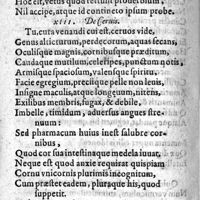 Hoc est, vetus quod territus prouerbium
Nil accipe, atque id continetò ipsum probe.
XIII. De Ceruis.
Tu, cura venandi cui est, ceruos vide,
Genus alticurum, per decorum, aquas secans,
Oculisque magnis, cornibusque præditum,
Caudaque mutilum, celeripes, punctum notis,
Armisque spaciosum, valensque spiritu.
Facie egregium, precique pelle non leui,
Insigne maculis, atque longæuum, nitens,
Exilibus membris, fugax, & debile,
Imbelle, timidum, aduersus angues strenuum:
Sed pharmacum huius inest salubre cornibus,
Quod cor sua intestinaque medela iuuat.
Neque est quod anxie requirat quispiam
Cornu vnicornis plurimis incognitum,
Cum præstet eadem, pluraque his, quod suppetit.